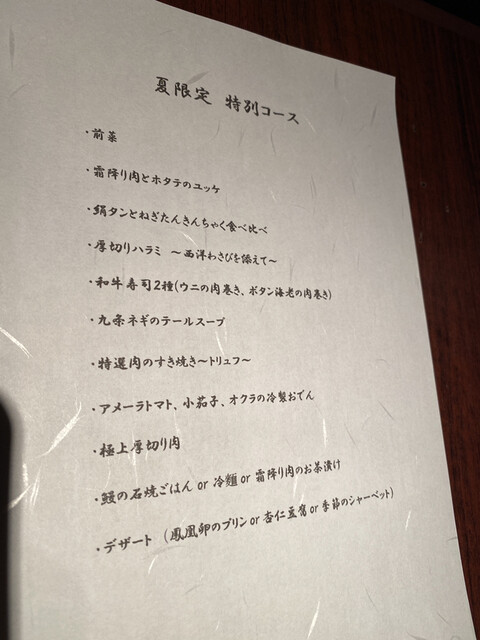 夏限定 特別コース
・前菜
・霜降り肉とホタテのユッケ
・絹タンとねぎたんきんちゃく食べ比べ
・厚切りハラミ ～西洋わさびを添えて～
・和牛寿司2種(ウニの肉巻き、ボタン海老の肉巻き)
・九条ネギのテールスープ
・特選肉のすき焼き～トリュフ～
・アメーラトマト、小茄子、オクラの冷製おでん
・極上厚切り肉
・鰻の石焼ごはん or 冷麺 or 霜降り肉のお茶漬け
・デザート (鳳凰卵のプリン or 杏仁豆腐 or 季節のシャーベット)